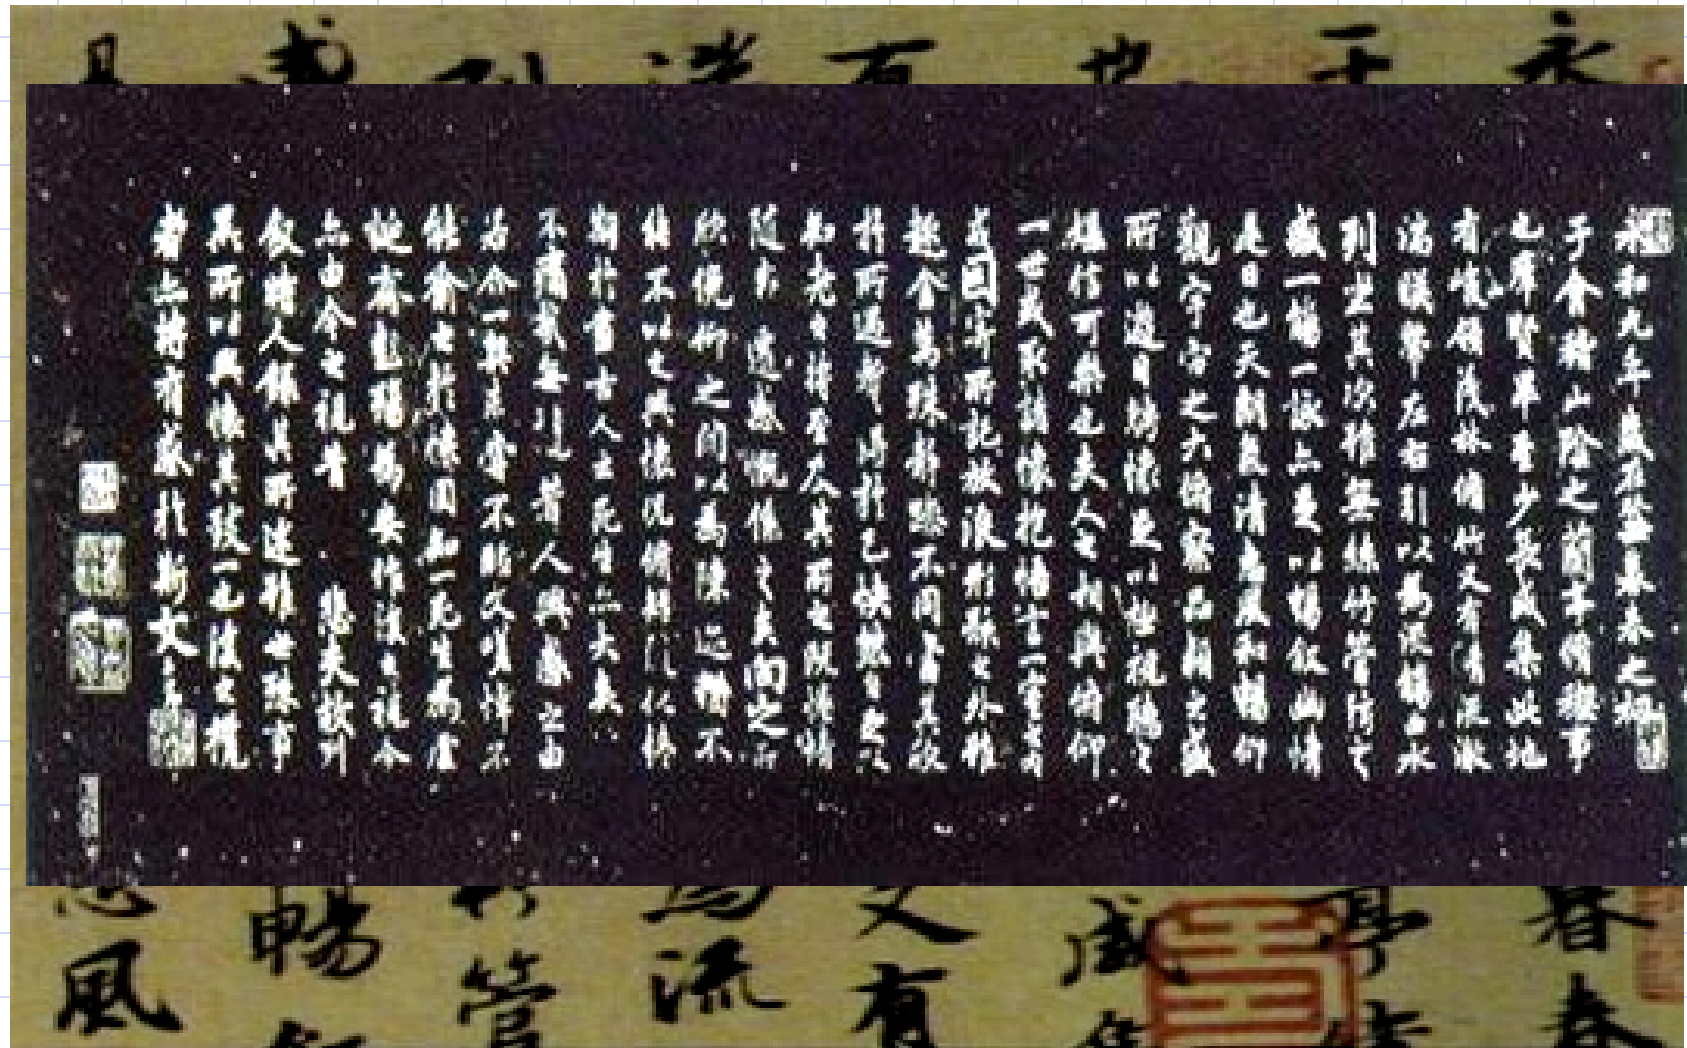 永
于
也
有
湍
列
盛
是
永和九年歲在癸丑暮春之初
于會稽山陰之蘭亭脩稧事
也羣賢畢至少長咸集此地
有峻領茂林脩竹又有清流激
湍暎帶左右引以為流觴曲水
列坐其次雖無絲竹管弦之
盛一觴一詠亦足以暢敘幽情
是日也天朗氣清惠風和暢仰
觀宇宙之大俯察品類之盛
所以遊目騁懷足以極視聽之
娛信可樂也夫人之相與俯仰
一世或取諸懷抱悟言一室之內
或因寄所託放浪形骸之外雖
趣舍萬殊靜躁不同當其欣
於所遇暫得於己快然自足不
知老之將至及其所之既惓情
隨事遷感慨係之矣向之所
欣俛仰之間以為陳迹猶不
能不以之興懷況脩短隨化終
期於盡古人云死生亦大矣
不痛哉每攬昔人興感之由
若合一契未嘗不臨文嗟悼不
能喻之於懷固知一死生為虛
誕齊彭殤為妄作後之視今
亦由今之視昔 悲夫故列
敘時人錄其所述雖世殊事
異所以興懷其致一也後之覽
者亦將有感於斯文
春春
亭
咸集
又有
為流
竹管
暢
惠風